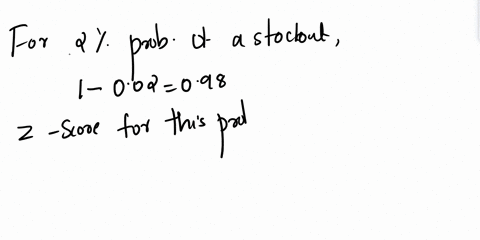 For 2% prob. of a stockout,
1 - 0.02 = 0.98
Z-score for this prob